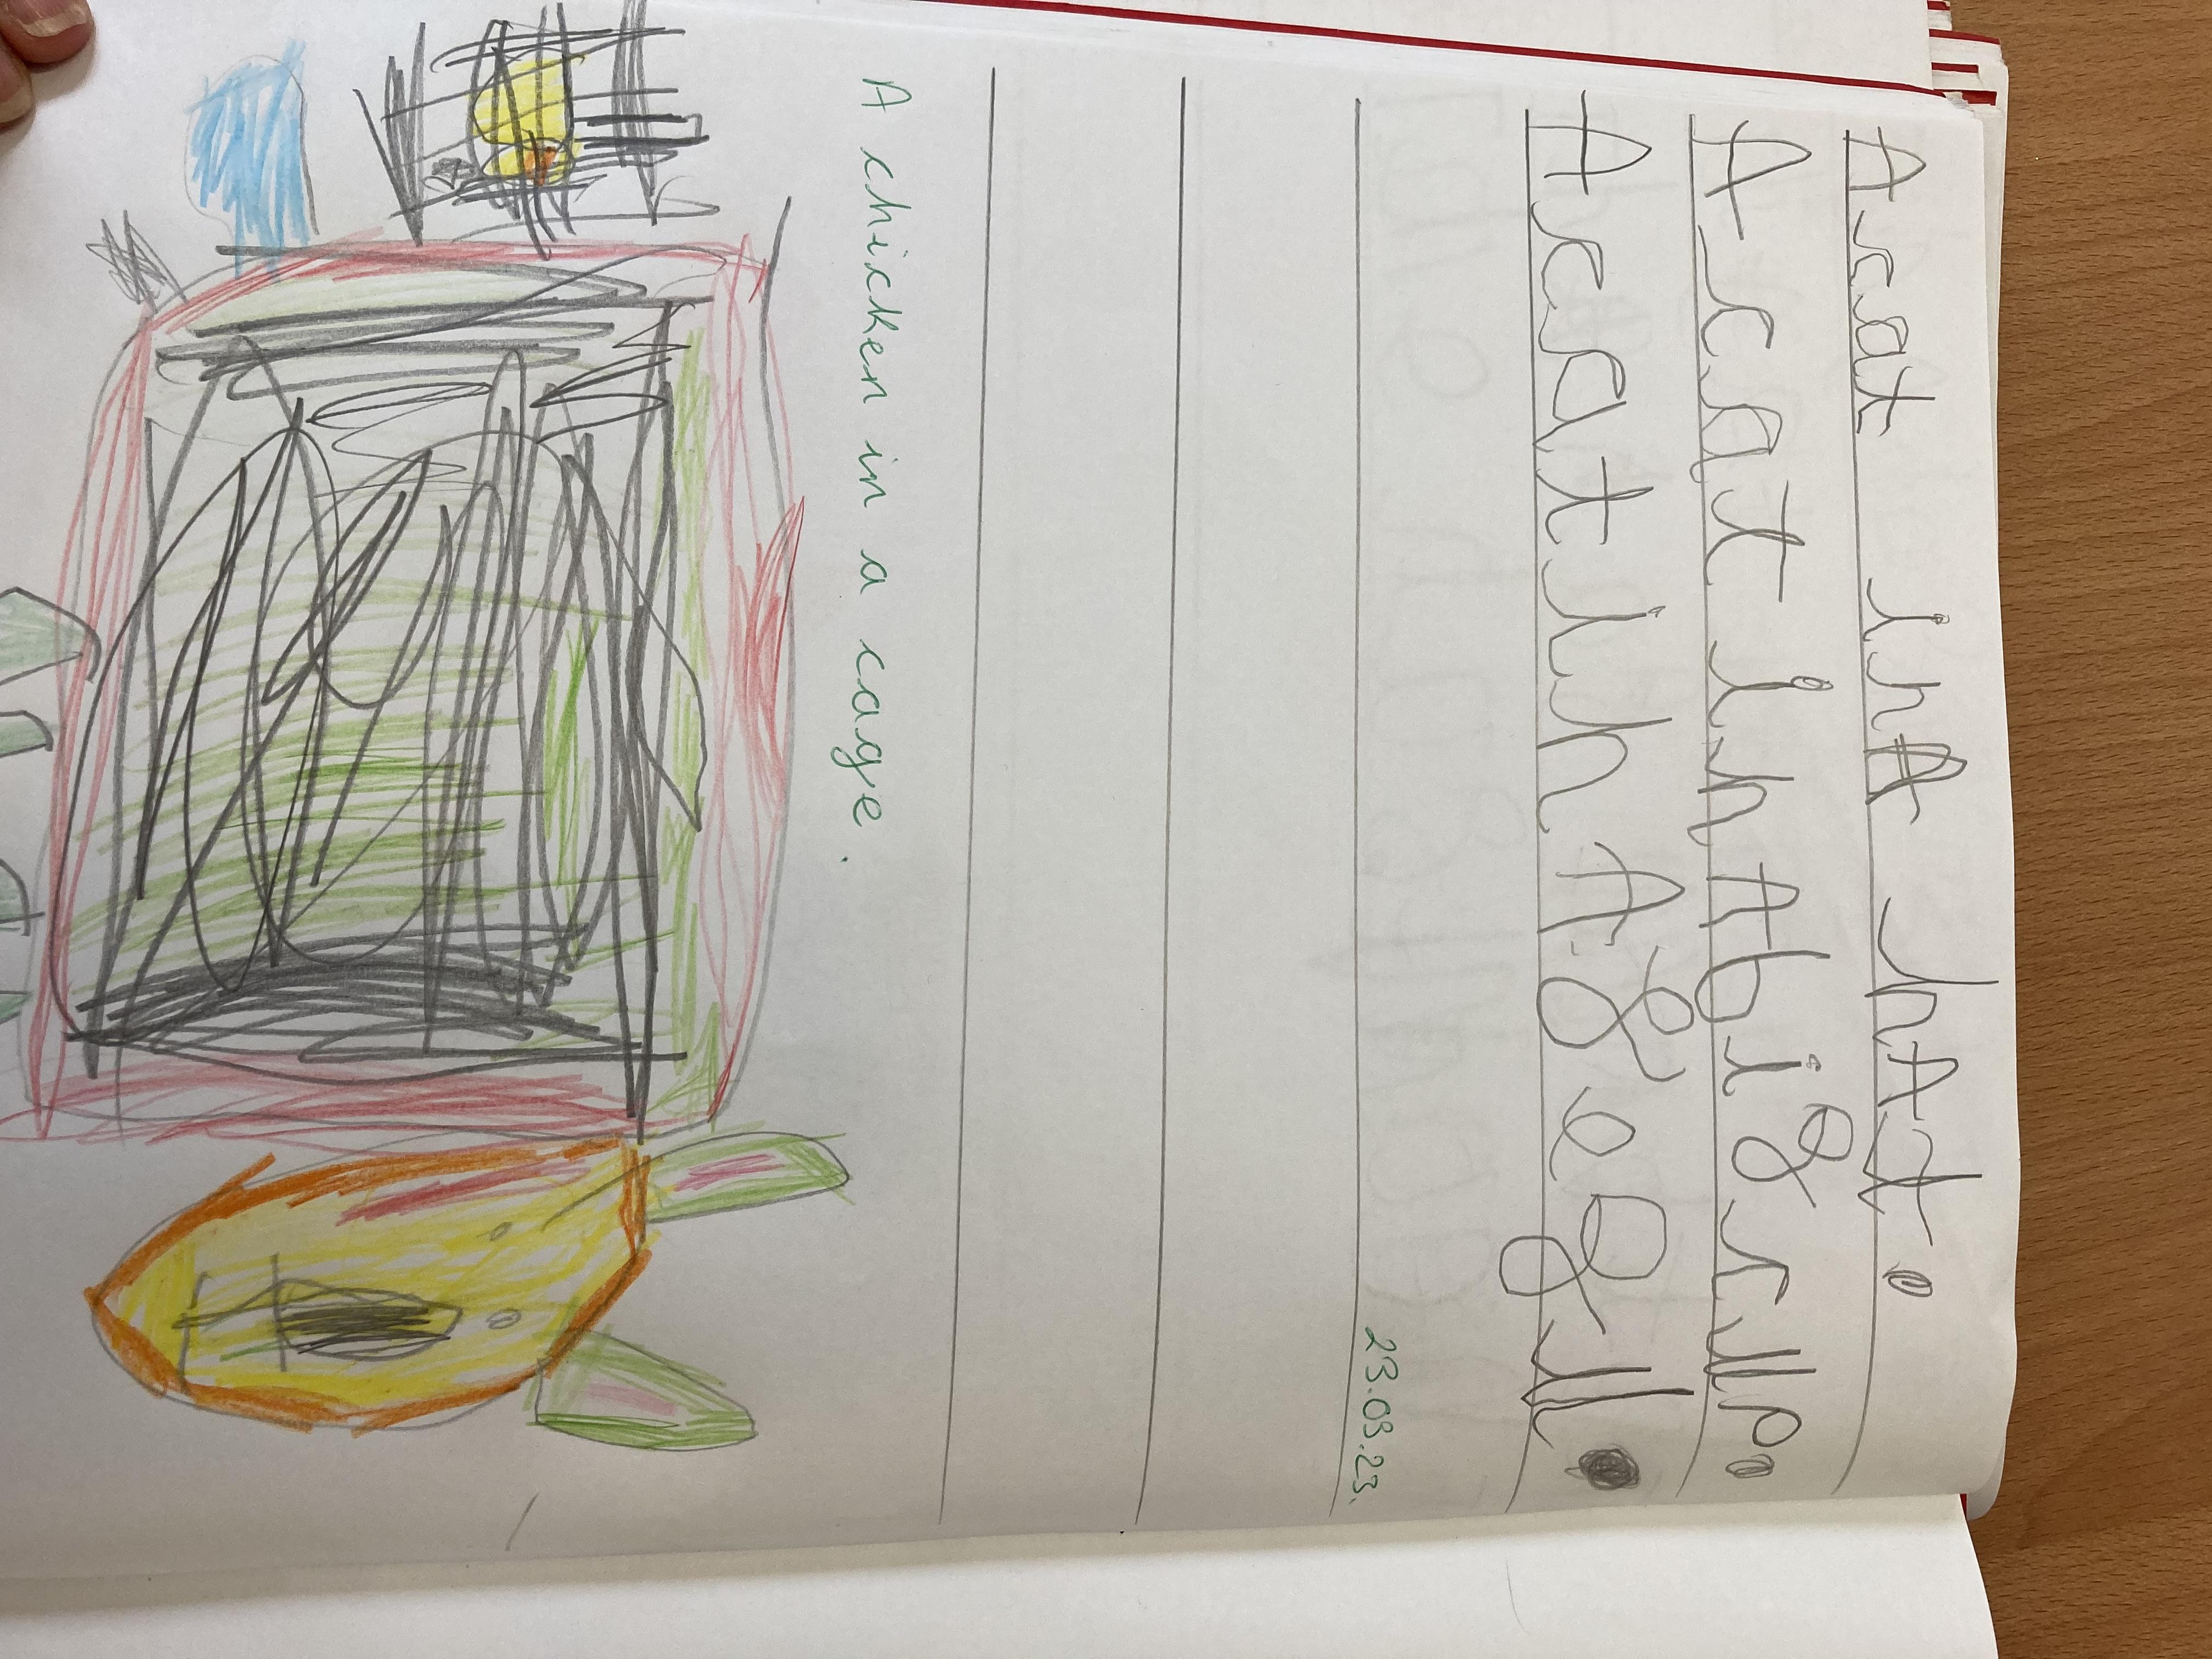 A cat in A hAt.
A cat in A big cup.
A cat in A
23.03.23.
A chicken in a cage.